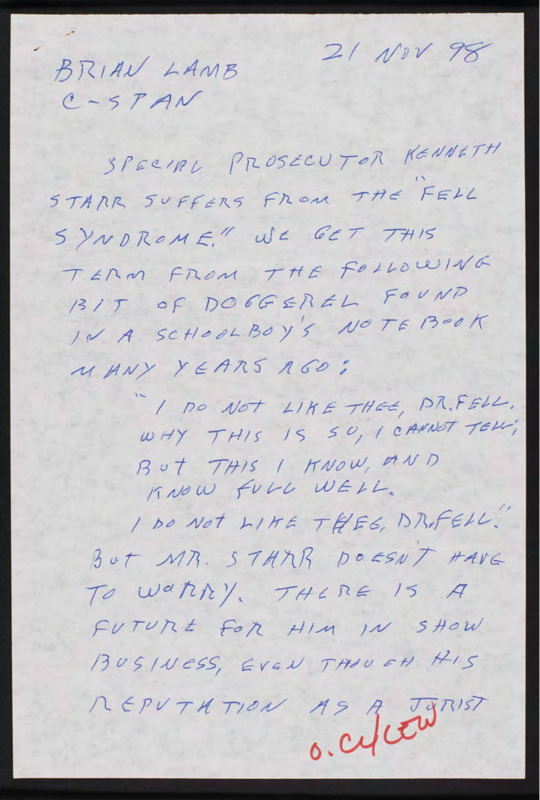 21 NOV 98
BRIAN LAMB
C-SPAN
SPECIAL PROSECUTOR KENNETH
STARR SUFFERS FROM THE "FELL
SYNDROME." WE GET THIS
TERM FROM THE FOLLOWING
BIT OF DOGGEREL FOUND
IN A SCHOOLBOY'S NOTEBOOK
MANY YEARS AGO:
"I DO NOT LIKE THEE, DR. FELL.
WHY THIS IS SO, I CANNOT TELL;
BUT THIS I KNOW, AND
KNOW FULL WELL.
I DO NOT LIKE THEE, DR. FELL."
BUT MR. STARR DOESN'T HAVE
TO WORRY. THERE IS A
FUTURE FOR HIM IN SHOW
BUSINESS, EVEN THOUGH HIS
REPUTATION AS A JURIST